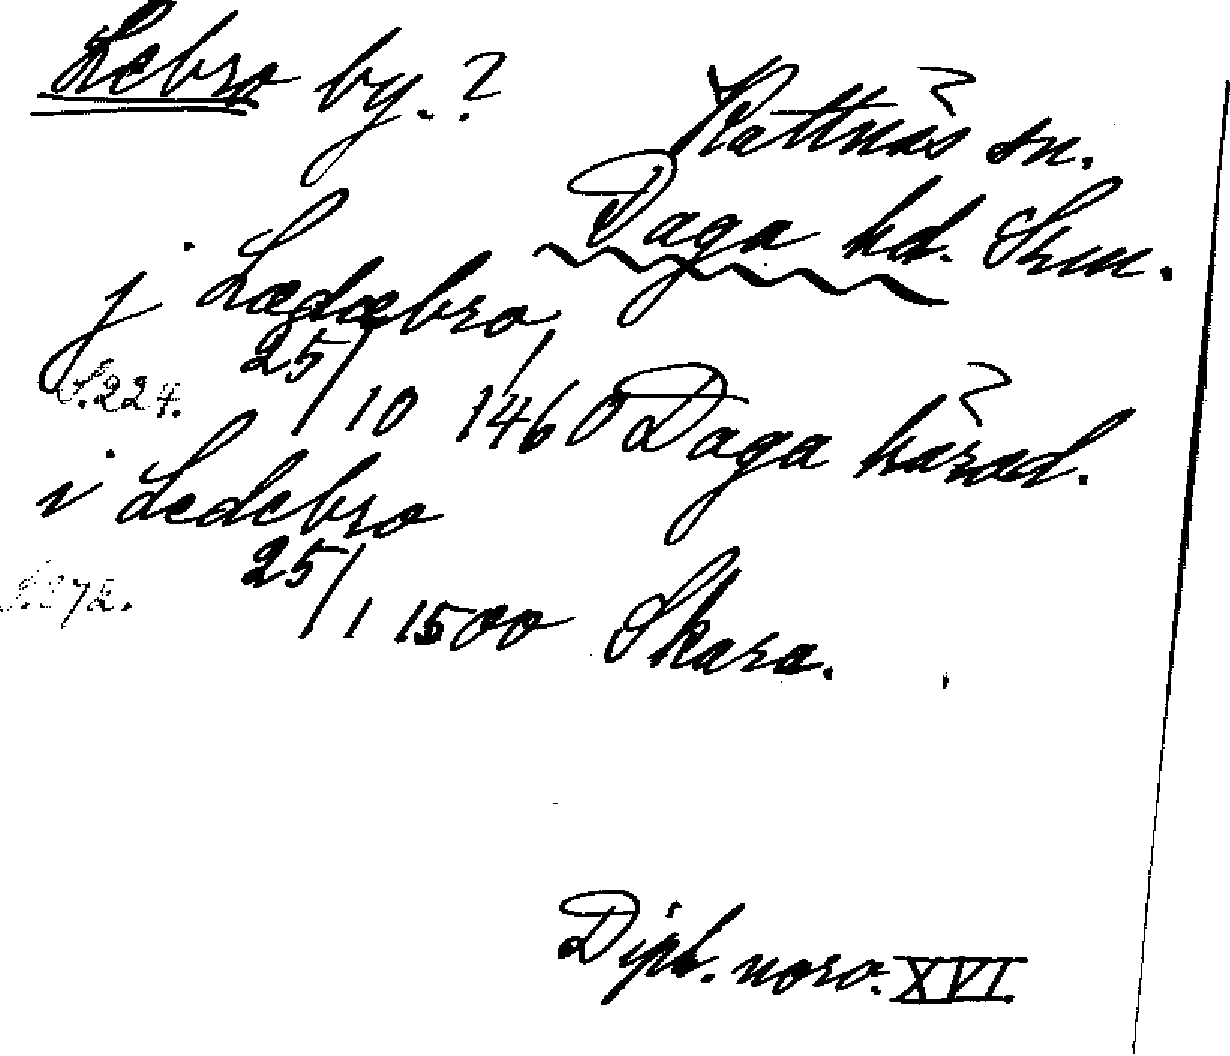 Lebro by.?
Kattnäs sn.
Daga hd. Srm.
j Lædæbro
S. 224. 25/10 1460 Daga härad.
i Ledebro
S. 372. 25/1 1500 Skara.
Dipl. norv. XVI.